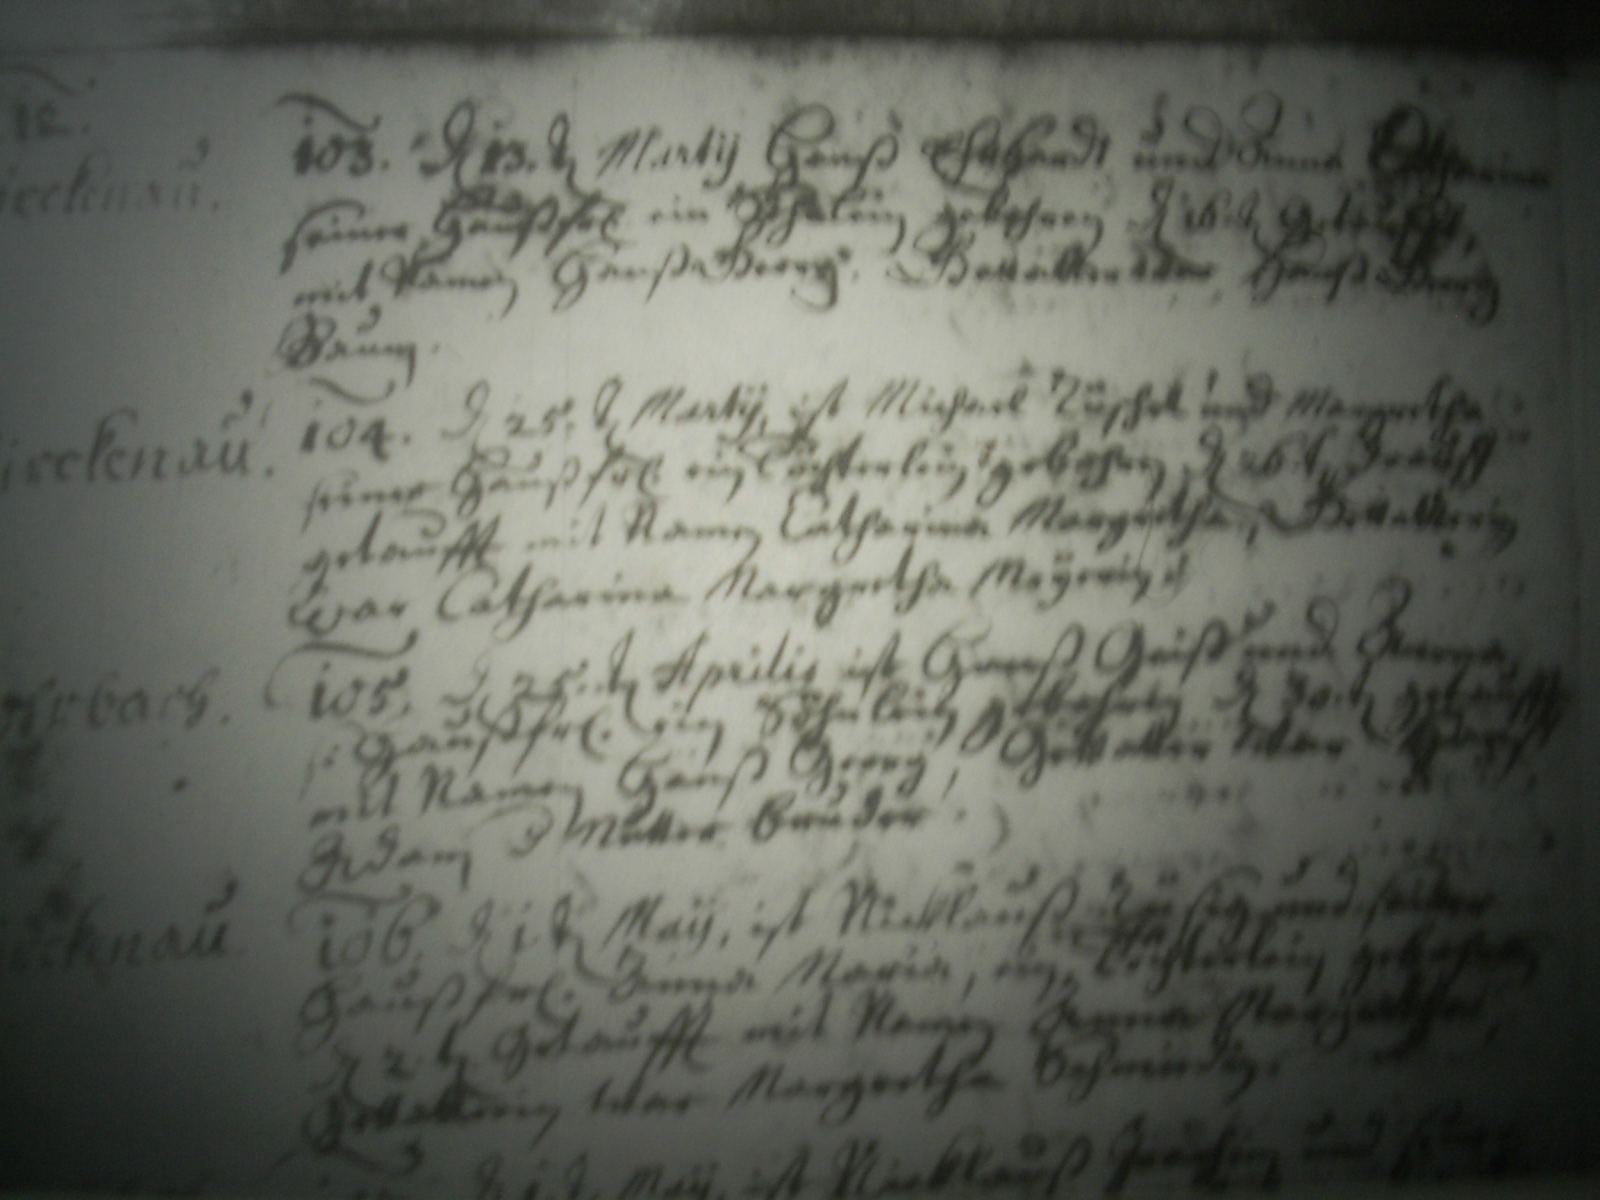 12.
103. d 13. t. Martij Hanß Ehrhardt und Anna Catharina
irckenau.
seiner Haußfr. ein Söhnlein gebohren d 16. t. getaufft,
mit Namen Hanß Georg. Gevatter war Hanß Georg
Baum.
104. d 25. t Martij, ist Michael und Margretha
irckenau.
seiner Haußfr. ein Töchterlein gebohren d 26. t. drauff
getaufft mit Namen Catharina Margretha, Gevatterin
war Catharina Margretha Meÿerin.
105. d 25. t. Aprilis ist Hanß Geiß und Anna,
hrbach.
s. Haußfr. ein Söhnlein gebohren d 30. t. getaufft
mit Namen Hanß Georg, Gevatter war
Adam d Mutter bruder.
106. d 1 t Maÿ, ist Nicklauß und seiner
irckenau
Haußfr. Anna Maria, ein Töchterlein gebohren
d 2. t. Getaufft mit Namen Anna Margretha,
Gevatterin war Margretha Schmidin.
d t. Maÿ, ist Nicklauß und